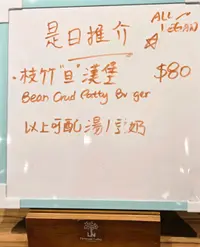 是日推介
ALL
・枝竹"旦"漢堡 $80
Bean Crud Patty Burger
以上可配湯/豆奶